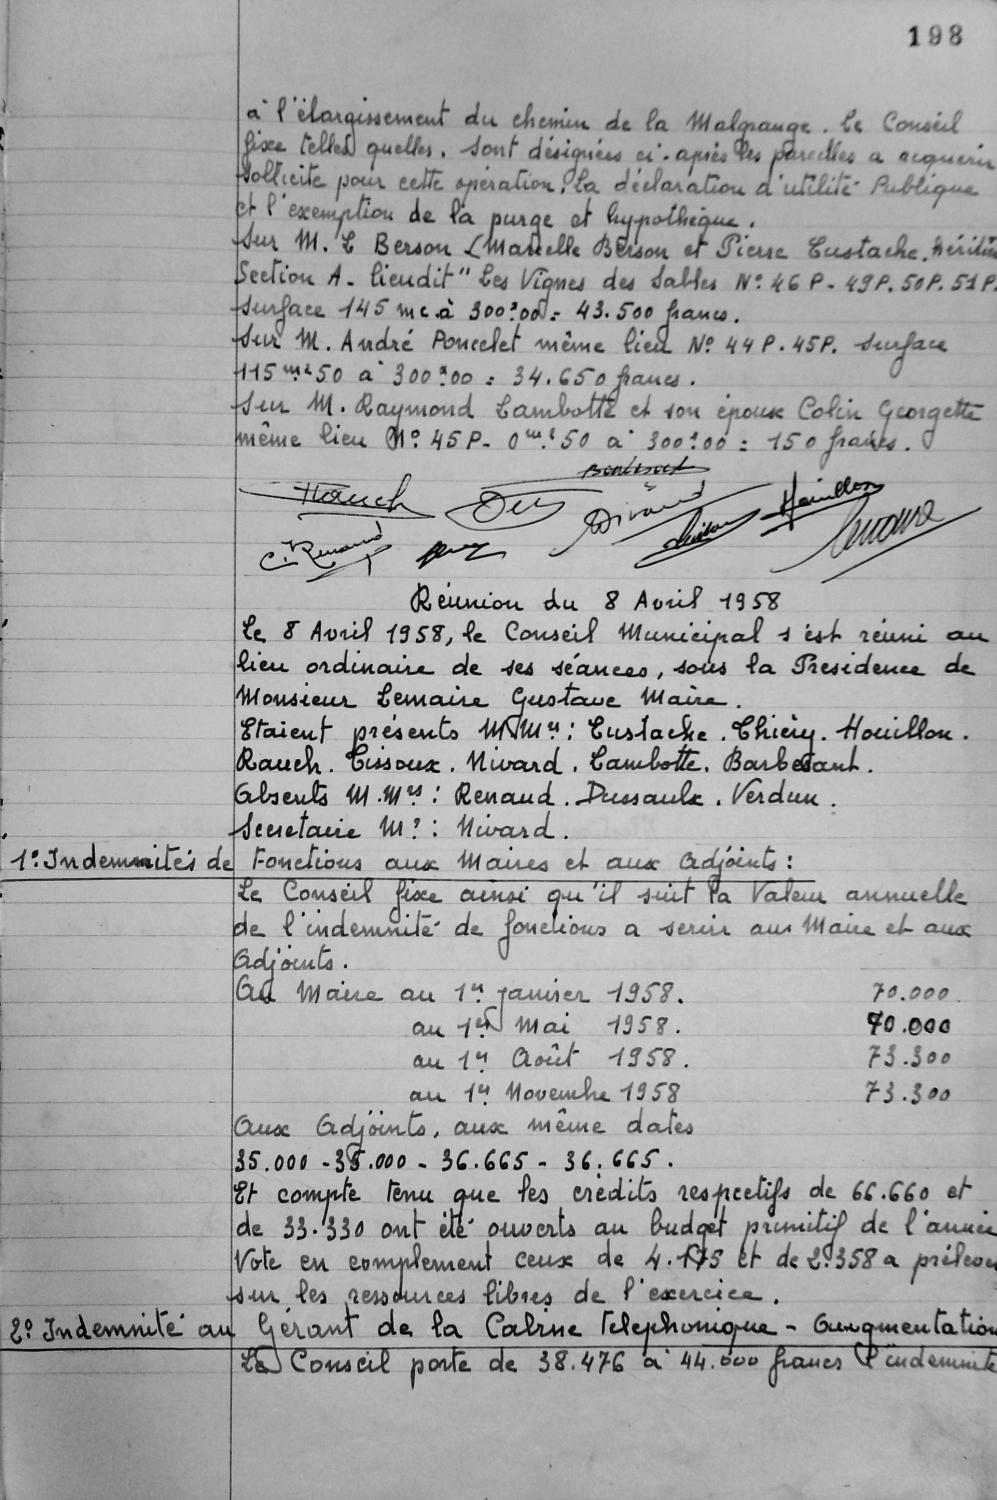 198
à l'élargissement du chemin de la Malgrange. Le Conseil
fixe telles quelles. Sont désignées ci-après les parcelles a acquerir
Sollicite pour cette opération, la déclaration d'utilité Publique
et l'exemption de la purge et hypothèque.
Sur M. L Berson (Marcelle Berson et Pierre Eustache, héritiers
Section A. lieudit "Les Vignes des Sables N° 46 P - 49 P. 50 P. 51 P.
Surface 145 mc. à 300f00 = 43.500 francs.
Sur M. André Poncelet même lieu N° 44 P. 45P. Surface
115 m2 50 à 300f00 = 34.650 francs.
Sur M. Raymond Lambotte et son épouse Colin Georgette
même lieu N° 45 P - 0 m2 50 à 300f00 = 150 francs.
Rauch Nivard Houillon
C. Renaud Lemaire
Réunion du 8 Avril 1958
Le 8 Avril 1958, le Conseil Municipal s'est réuni au
lieu ordinaire de ses séances, sous la Présidence de
Monsieur Lemaire Gustave Maire.
Etaient présents M.Mrs : Eustache. Thiéry. Houillon.
Rauch. Tissoux. Nivard. Lambotte. Barbesant.
Absents M.Mrs : Renaud. Dussaulx. Verdun.
Secretaire Mr : Nivard.
1° Indemnités de Fonctions aux Maires et aux Adjoints :
Le Conseil fixe ainsi qu'il suit la Valeur annuelle
de l'indemnité de fonctions a servir aux Maire et aux
Adjoints.
Au Maire au 1er janvier 1958. 70.000
au 1er Mai 1958. 70.000
au 1er Août 1958. 73.300
au 1er Novembre 1958 73.300
Aux Adjoints, aux même dates
35.000 - 35.000 - 36.665 - 36.665.
Et compte tenu que les crédits respectifs de 66.660 et
de 33.330 ont été ouverts au budget primitif de l'année
Vote en complement ceux de 4.175 et de 2.358 a prélever
sur les ressources libres de l'exercice.
2° Indemnité au Gérant de la Cabine Telephonique - Augmentation
Le Conseil porte de 38.476 à 44.000 francs l'indemnité